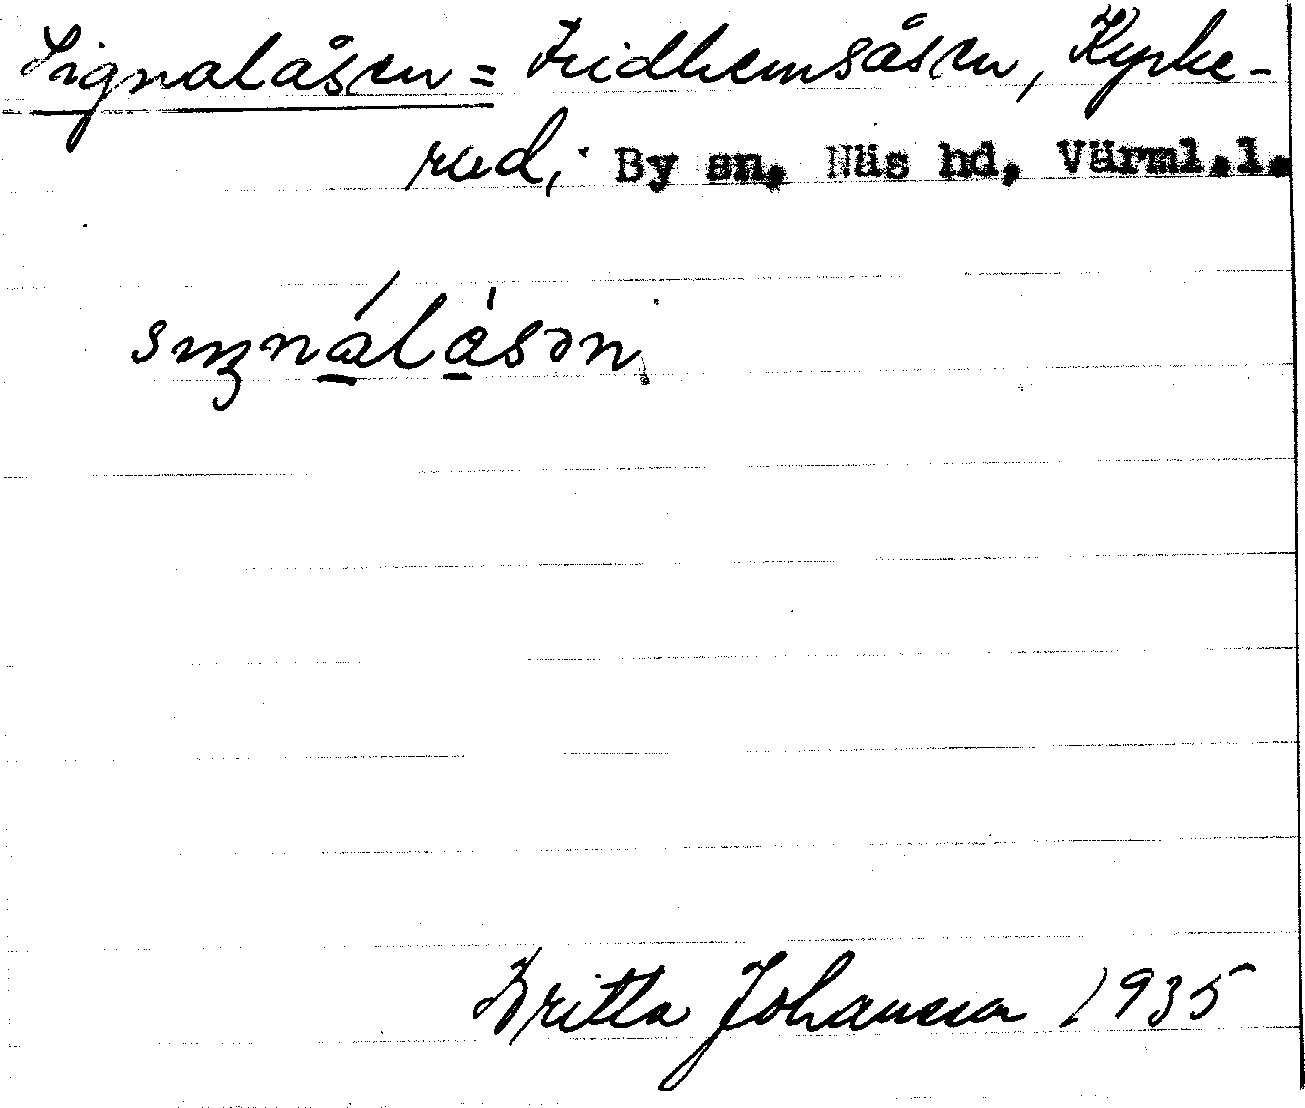 Signalåsen = Fridhemsåsen, Kyrke-
rud, By sn. Näs hd, Värml.l.
Britta Johansson 1935